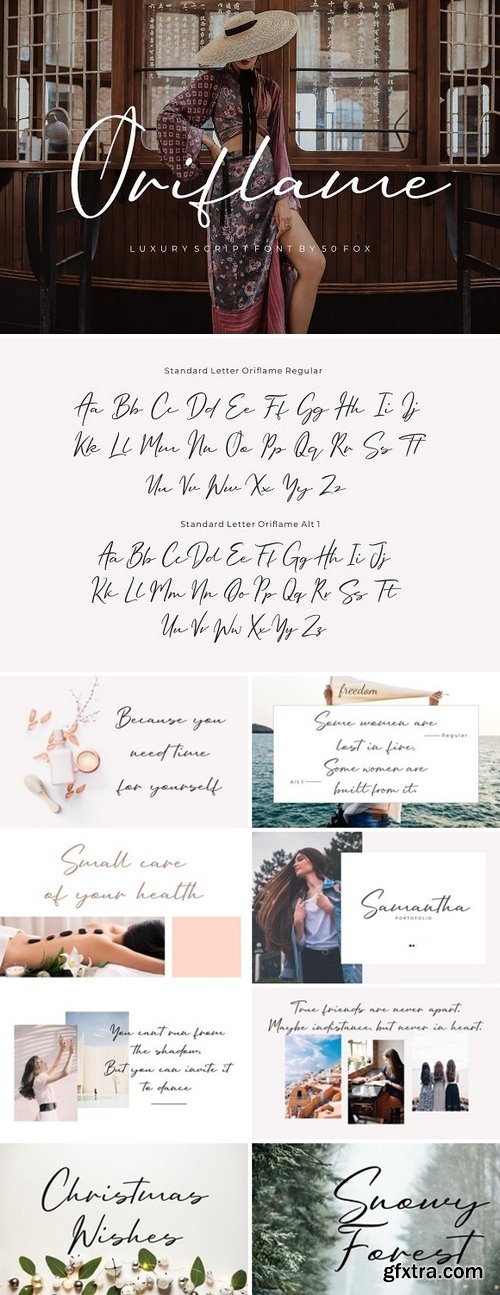 Oriflame
LUXURY SCRIPT FONT BY 50 FOX
Standard Letter Oriflame Regular
Aa Bb Cc Dd Ee Ff Gg Hh Ii Jj
Kk Ll Mm Nn Oo Pp Qq Rr Ss Tt
Uu Vv Ww Xx Yy Zz
Standard Letter Oriflame Alt 1
Aa Bb Cc Dd Ee Ff Gg Hh Ii Jj
Kk Ll Mm Nn Oo Pp Qq Rr Ss Tt
Uu Vv Ww Xx Yy Zz
Because you
need time
for yourself
freedom
Some women are
Regular
lost in fire,
Some women are
Alt 1
built from it.
Small care
of your health
Samantha
PORTOFOLIO
You can't run from
the shadow,
But you can invite it
to dance
True friends are never apart,
Maybe indistance, but never in heart.
Christmas
Wishes
Snowy
Forest
gfxtra.com